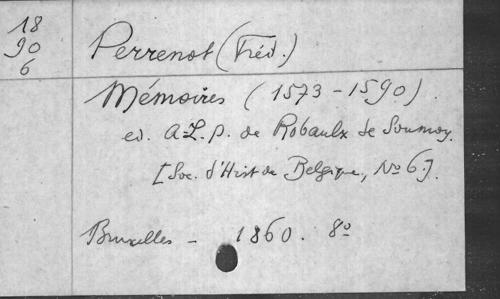 18
90
6
Perrenot (Fréd.)
Mémoires (1573-1590).
ed. A-L. P. de Robaulx de Soumoy.
[Soc. d'Hist de Belgique, No 6].
Bruxelles - 1860. 8º